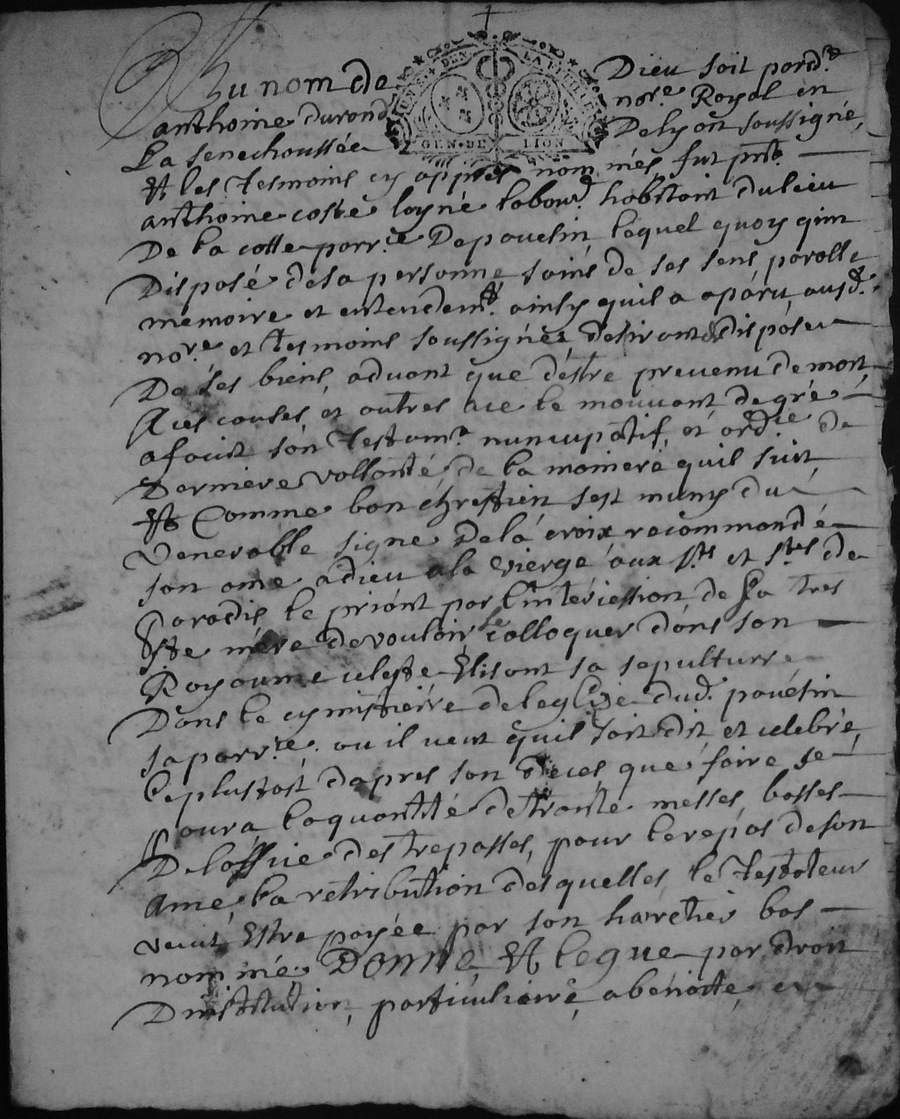 Au nom de Dieu soit pard.t
anthoine durand no.re Royal en
La senechaussée De lyon soussigné,
GEN · DE · LION
Et les tesmoins cy appres nommés, fut p.nt
anthoine coste l'ayné labour.r habitant du lieu
De la coste parr.e De pouelin, lequel quoy qu'in
Disposé de sa personne, sains de ses sens parolle
memoire et entendem.t ainsy quil a aparu ausd.
no.re et tesmoins soussignés desirant disposer
De ses biens, advant que d'éstre prevenu de mort
A ces causes, et autres ace le mouvant de gré
a faict son testam.t nuncupatif, et ord.re de
Derniere vollonté de la maniere quil suit,
Et Comme bon chrestien sest muny du
Venerable signe de la croix recommandé
son ame a dieu a la vierge aux s.ts et s.tes de
Paradis le priant par l'intercession de sa tres
s.te mère de vouloir le colloquer dans son
Royaume celeste Elisant sa sepulture
Dans le cymistiere de leglize dud. pouelin
sa parr.e ou il veut quil soit dit et celebré
le plustost d'apres son deces que faire se
Poura la quantité de trante messes, basses
De l'office des trepassés, pour le repos de son
Ame, la retribution desquelles le testateur
veut Estre payée par son haretier bas
nommé. Donne Et legue par droit
D'institution, particuliaire, a benoite,